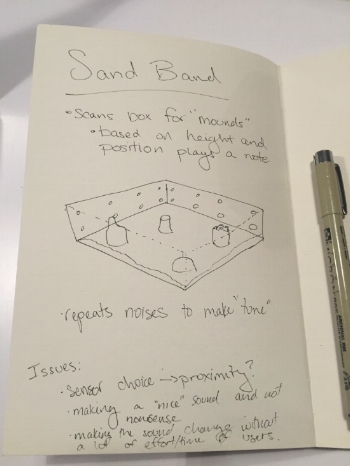 Sand Band
• Scans box for "mounds"
• based on height and
position plays a note
• repeats noises to make "tune"
Issues:
• Sensor choice → proximity?
• making a "nice" sound and not
nonsense.
• making the sound change without
a lot of effort/time of users.